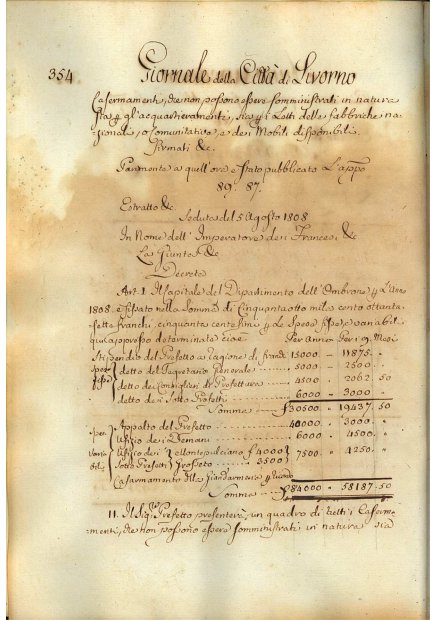 354 Giornale della Città di Livorno
Casermamenti, che non possono essere somministrati in natura
sia p gl'acquartieramenti, sia p i Letti delle fabbriche na=
zionali, o Comunitative e dei Mobili disponibili.
Firmati &c.
Parimente a quell'ora è stato pubblicato L'appo
89. 87.
Estratto &c.
Seduta del 5 Agosto 1808
In Nome dell'Imperatore dei Francesi &c
La Giunta &c
Decreta
Art. I. Il Capitale del Dipartimento dell'Ombrone p L'Anno
1808. è fissato nella Somma di Cinquantaotto mila cento ottanta=
sette franchi, cinquanta centesimi p Le Spese fisse, e variabili
qui appresso determinate cioè Per Anno Per i 9. Mesi
Stipendio del Prefetto a ragione di franchi 15000 - 11875. "
detto del Segretario Generale 5000 - 2500. "
detto dei Consiglieri di Prefettura 4500 2062. 50
detto dei Sotto Prefetti 6000 - 3000 "
Somme £ 30500 " 19437. 50
Appalto del Prefetto 40000 " 3000 "
Uffizio dei Demani 6000 " 4500. "
Uffizio dei Montepulciano £ 4000 7500 " 4250 "
Sotto Prefetti Groseto 3500
Casermamento della Giandarmeria
Somme £ 84000 " 58187. 50
II. Il Sig. Prefetto presenterà, un quadro di tutti i Caserma=
menti, che non possono essere somministrati in natura sia